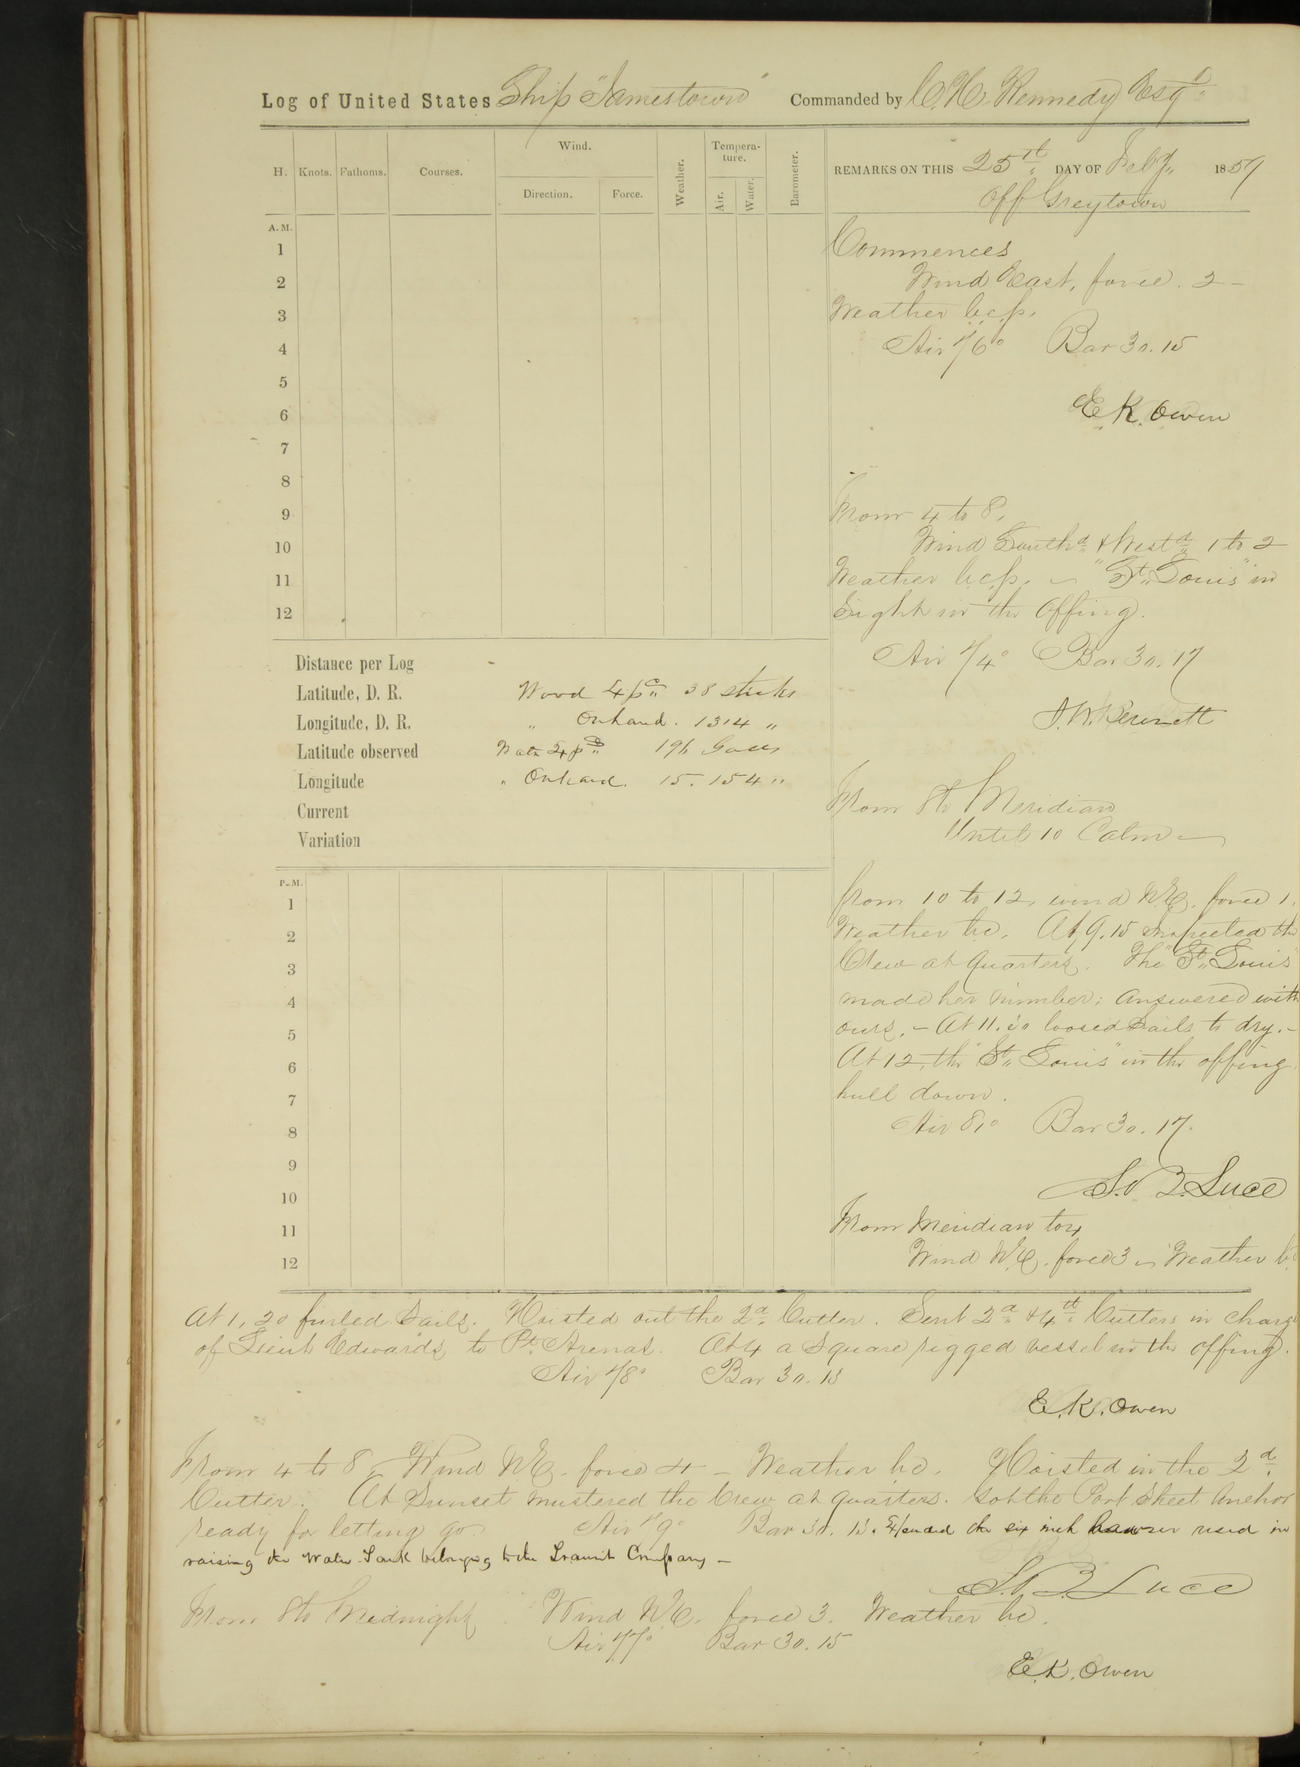 Log of United States Ship "Jamestown" Commanded by C. H. Kennedy Esqr
H. Knots. Fathoms. Courses. Wind. Direction. Force. Weather. Tempera-ture. Air. Water. Barometer.
REMARKS ON THIS 25th DAY OF Feby, 1859
Off Greytown
A.M.
1
2
3
4
5
6
7
8
9
10
11
12
Commences
Wind East, force. 2 -
Weather bcp.
Air 76° Bar 30.15
E. K. Owen
From 4 to 8.
Wind Southd & Westd 1 to 2
Weather bcp. - "St. Louis" in
Sight in the Offing.
Air 74° Bar 30.17
J. W. Bennett
Distance per Log
Latitude, D. R. Wood 38 sticks
Longitude, D. R. " On hand. 1314 "
Latitude observed 196 Galls
Longitude " On hand. 15.154 "
Current
Variation
From 8 to Meridian
Until 10 Calm -
from 10 to 12, wind N.E. force 1.
Weather bc. At 9.15 inspected the
Crew at Quarters. The "St. Louis"
made her number; answered with
ours. - At 11.30 loosed Sails to dry. -
At 12, the "St. Louis" in the offing
hull down.
Air 81° Bar 30.17.
S. B. Luce
P.M.
1
2
3
4
5
6
7
8
9
10
11
12
From Meridian to 4
Wind N.E. force 3 - Weather bc
At 1,20 furled Sails. Hoisted out the 2d Cutter. Sent 2d & 4th Cutters in charge
of Lieut Edwards, to Pt. Arenas. At 4 a Square rigged vessel in the offing.
Air 78° Bar 30.13
E. K. Owen
From 4 to 8, Wind N.E. force 4 - Weather bc. Hoisted in the 2d
Cutter. At Sunset mustered the Crew at quarters. Got the Port Sheet Anchor
ready for letting go. Air 79° Bar 30.13. Expended the six inch hawser used in
raising the Water Tank belonging to the Transit Company -
S. B. Luce
From 8 to Midnight Wind N.E. force 3. Weather bc.
Air 77° Bar 30.15
E. K. Owen